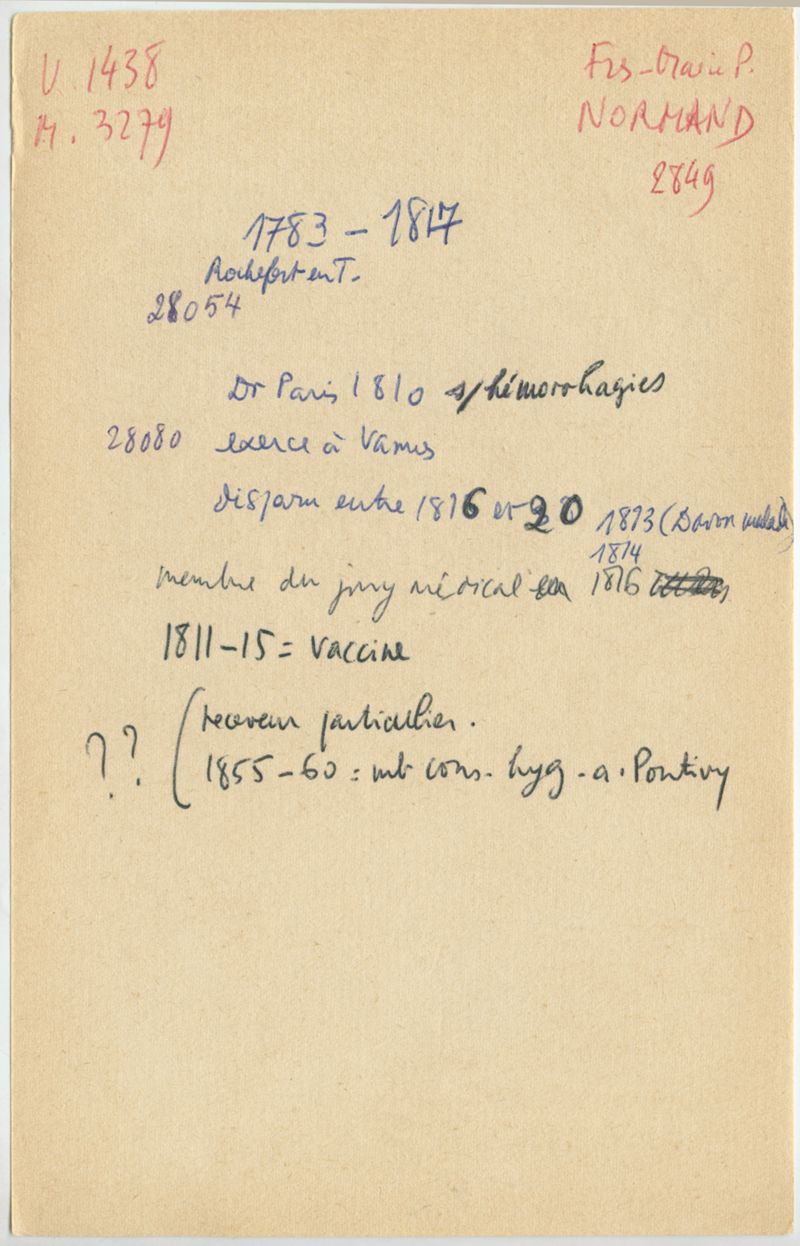 V. 1438
M. 3279
Frs-Marie P.
NORMAND
2849
1783 - 1817
Rochefort en T.
28054
Dr Paris 1810 s/ hémorrhagies
28080 exerce à Vannes
disparu entre 1816 et 20
1813 (Doron malade)
1814
membre du jury médical en 1816
1811-15 = vaccine
?? ( receveur particulier.
1855-60 = mb cons. hyg. a. Pontivy